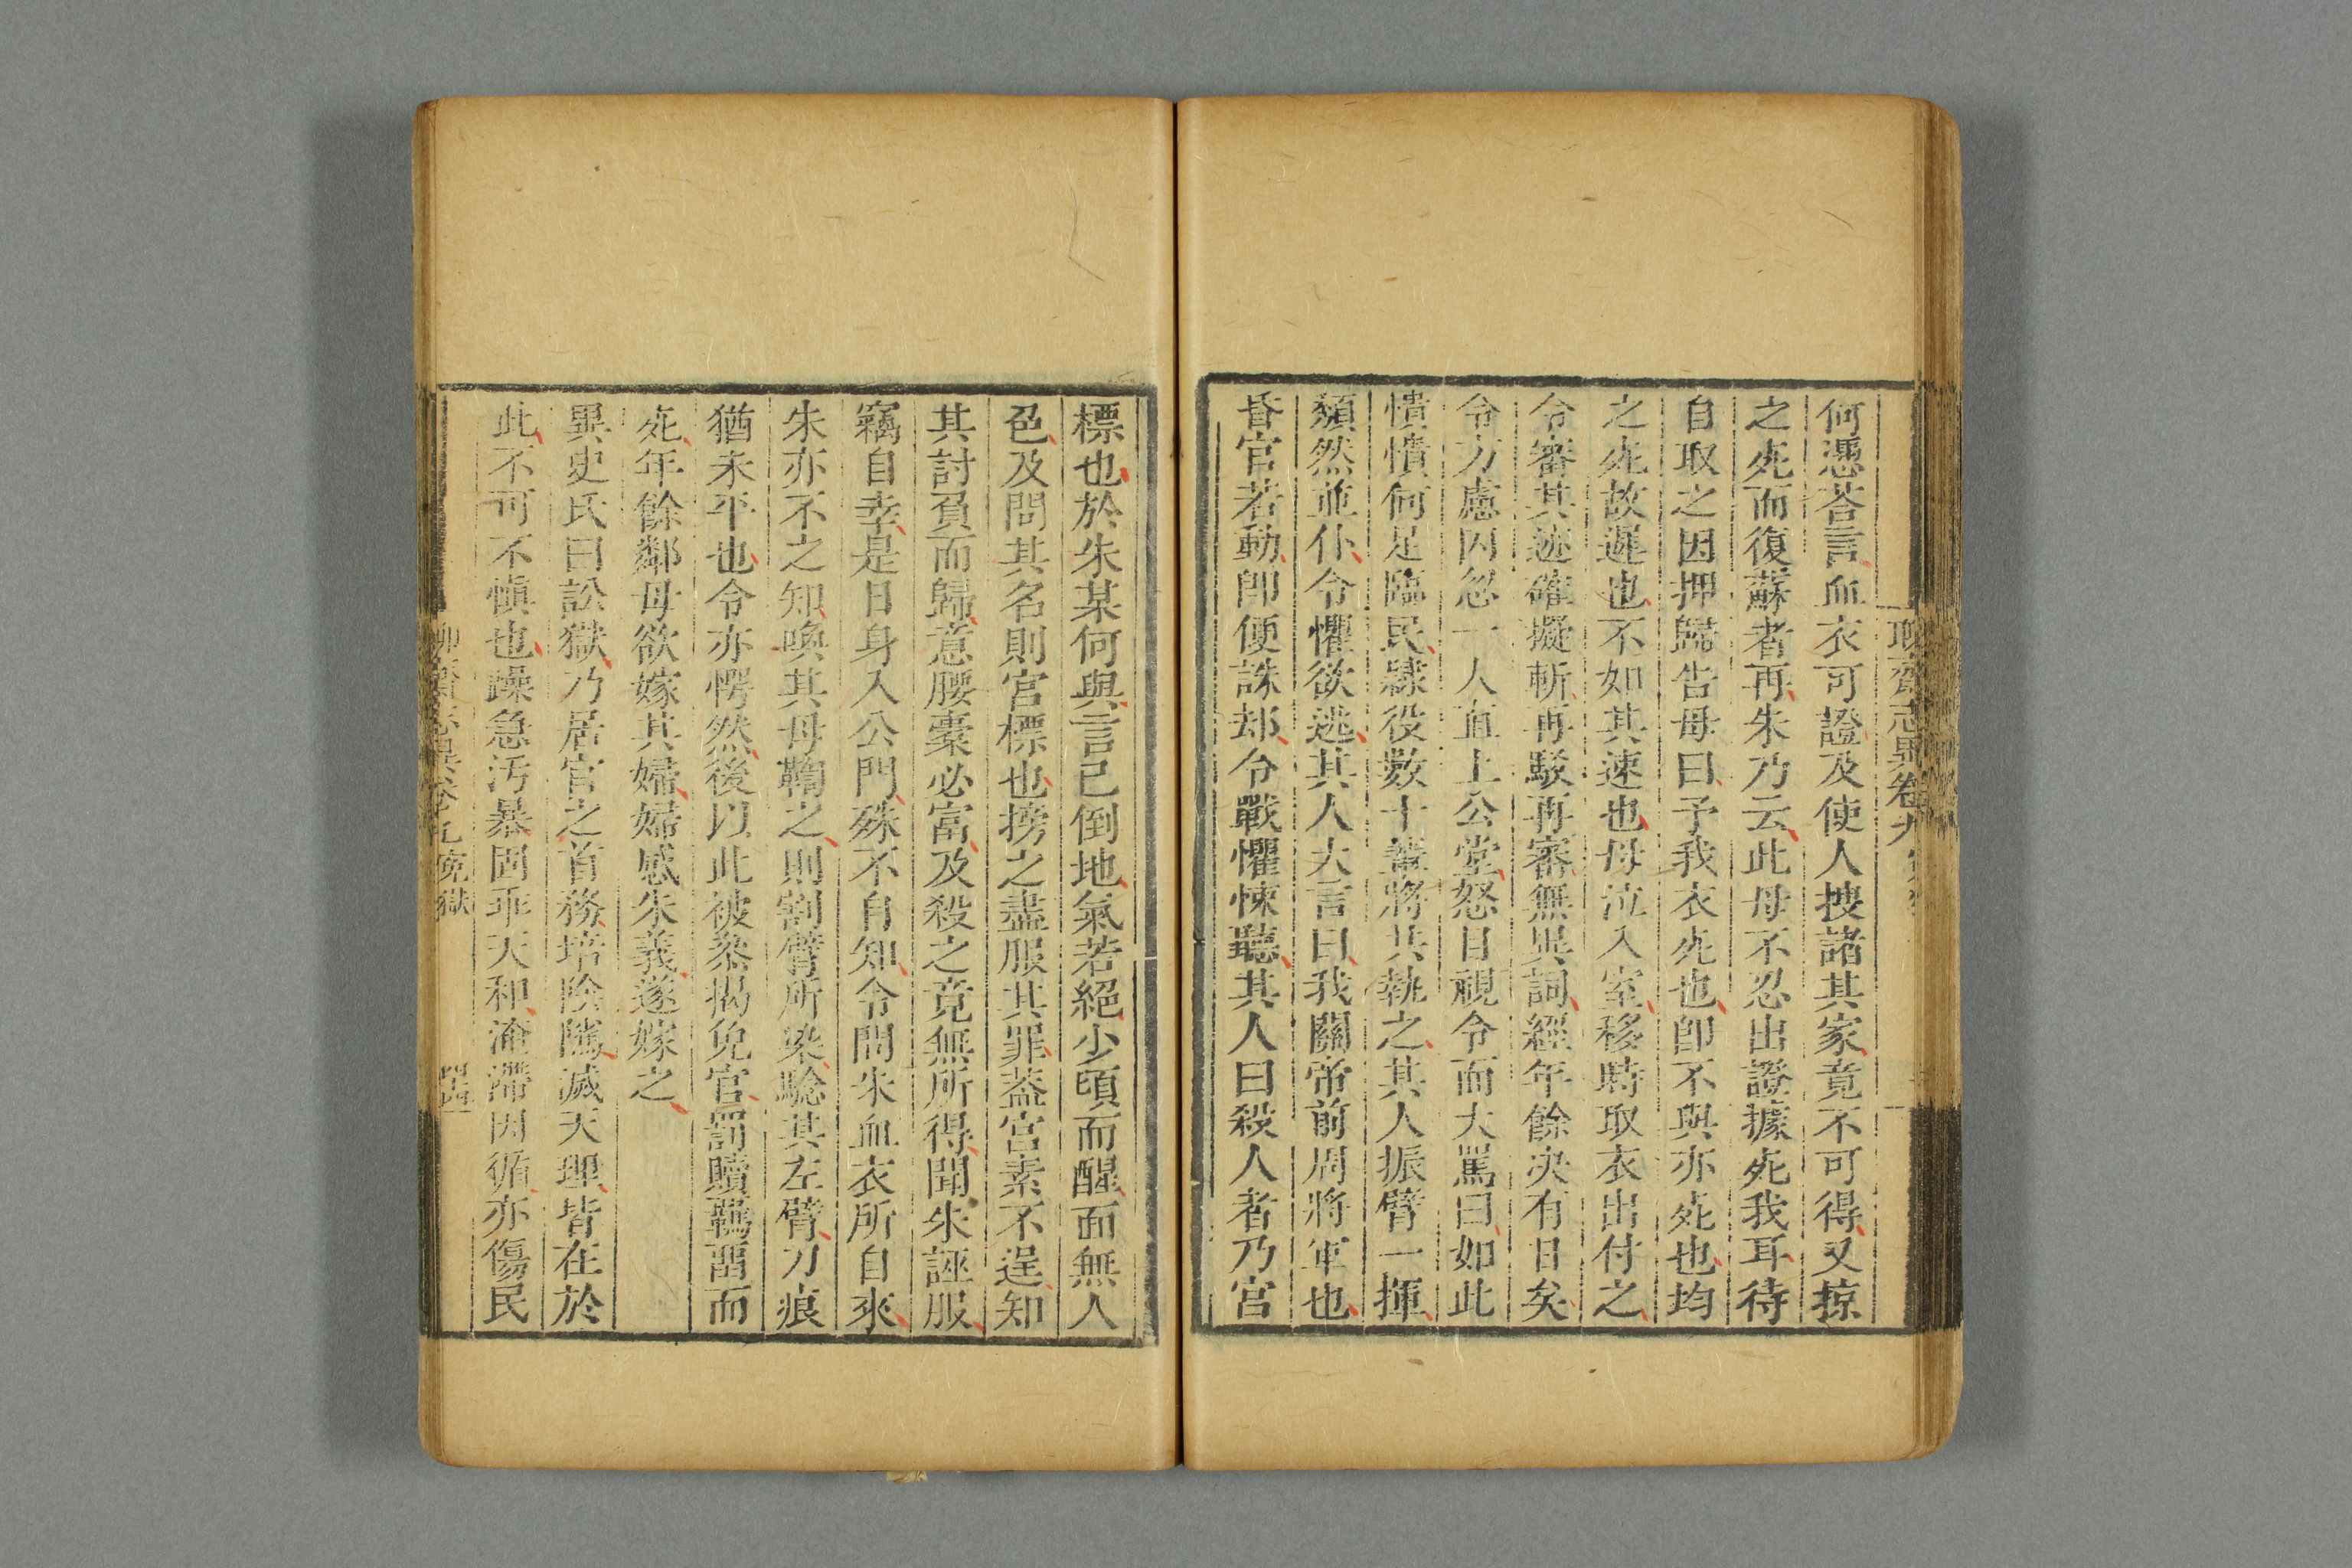 聊齋志異卷九
何憑荅言血衣可證及使人搜諸其家竟不可得又掠
之死而復蘇者再朱乃云此母不忍出證據死我耳待
自取之因押歸告母曰予我衣死也卽不與亦死也均
之死故遲也不如其速也母泣入室移時取衣出付之
令審其迹確擬斬再駁再審無異詞經年餘决有日矣
令方慮囚忽一人直上公堂怒目視令而大罵曰如此
憒憒何足臨民隸役數十輩將共執之其人振臂一揮
頽然並仆令懼欲逃其人大言曰我關帝前周將軍也
昏官若動卽便誅却令戰懼悚聽其人曰殺人者乃宫
標也於朱某何與言已倒地氣若絕少頃而醒面無人
色及問其名則宫標也搒之盡服其罪葢宫素不逞知
其討負而歸意腰橐必富及殺之竟無所得聞朱誣服
竊自幸是日身入公門殊不自知令問朱血衣所自來
朱亦不之知喚其母鞫之則割臂所染驗其左臂刀痕
猶未平也令亦愕然後以此被叅揭免官罰贖羈畱而
死年餘鄰母欲嫁其婦婦感朱義遂嫁之
異史氏曰訟獄乃居官之首務培陰隲滅天理皆在於
此不可不愼也躁急汚暴固乖天和淹滯因循亦傷民
聊齋志異卷九寃獄